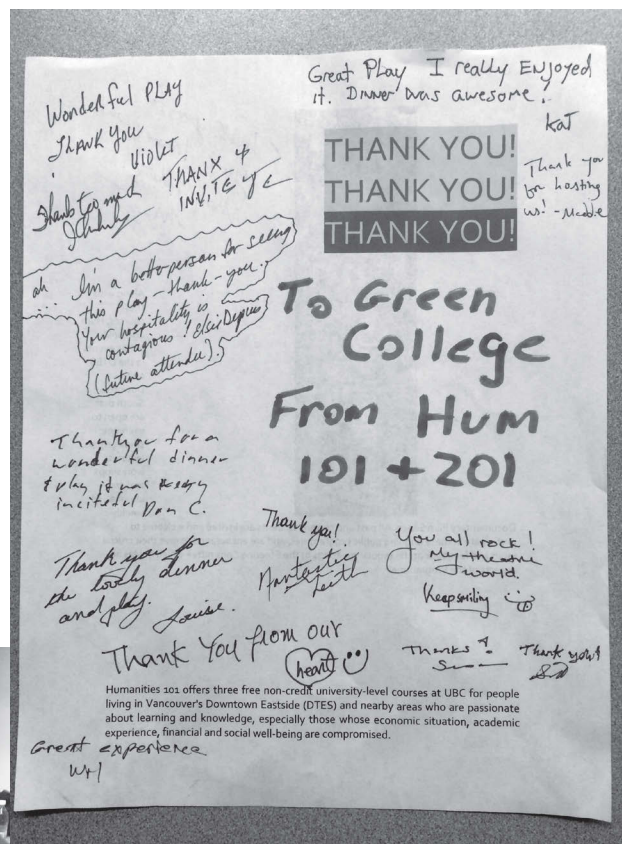 Wonderful PLAY
Thank you
Violet
Great Play I really Enjoyed
it. Dinner was awesome!
Kat
THANK YOU!
THANK YOU!
THANK YOU!
Thank you
for hosting
us! -
THANX 4
INVITE
Thanks too much
ah ... I'm a better person for seeing
this play - thank - you.
Your hospitality is
contagious! Elsie
(future attendee).
To Green
College
From Hum
101 + 201
Thankyou for a
wonderful dinner
& play it was very
inciteful Dan C.
Thank you!
Fantastic
You all rock!
My theatre
world.
Keep smiling
Thank you for
the lovely dinner
and play.
Louise.
Thank You from our
heart
Thanks!
Thank you!
Humanities 101 offers three free non-credit university-level courses at UBC for people
living in Vancouver's Downtown Eastside (DTES) and nearby areas who are passionate
about learning and knowledge, especially those whose economic situation, academic
experience, financial and social well-being are compromised.
Great experience